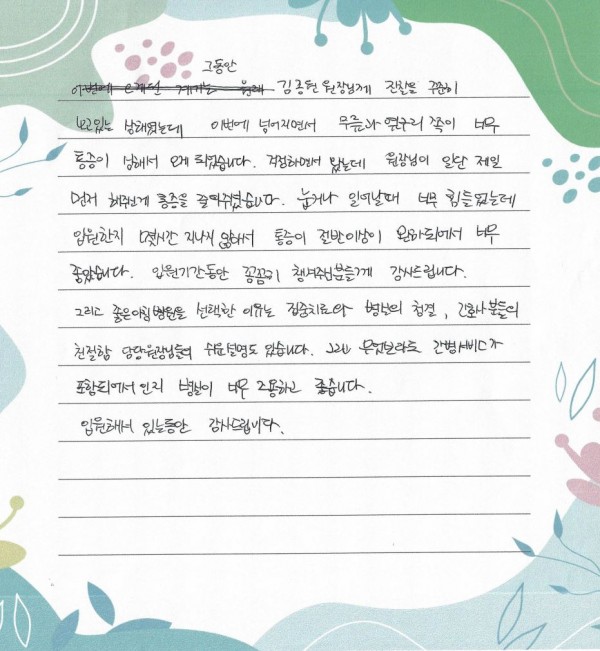 그동안
이번에 오게된 계기는 원래 김종현 원장님께 진찰을 꾸준히
보고있는 상태였는데 이번에 넘어지면서 무릎과 옆구리 쪽이 너무
통증이 심해서 오게 되었습니다. 걱정하면서 왔는데 원장님이 일단 제일
먼저 해주신게 통증을 줄여주셨습니다. 눕거나 일어날때 너무 힘들었는데
입원한지 몇시간 지나지 않해서 통증이 절반이상이 완화되어서 너무
좋았습니다. 입원기간동안 꼼꼼히 챙겨주신분들께 감사드립니다.
그리고 좋은아침병원을 선택한 이유는 집중치료와 병실의 청결, 간호사분들의
친절함 담당원장님들의 쉬운설명도 있습니다. 그리고 무엇보다도 간병서비스가
포함되어서 인지 병실이 너무 조용하고 좋습니다.
입원해서 있는동안 감사드립니다.